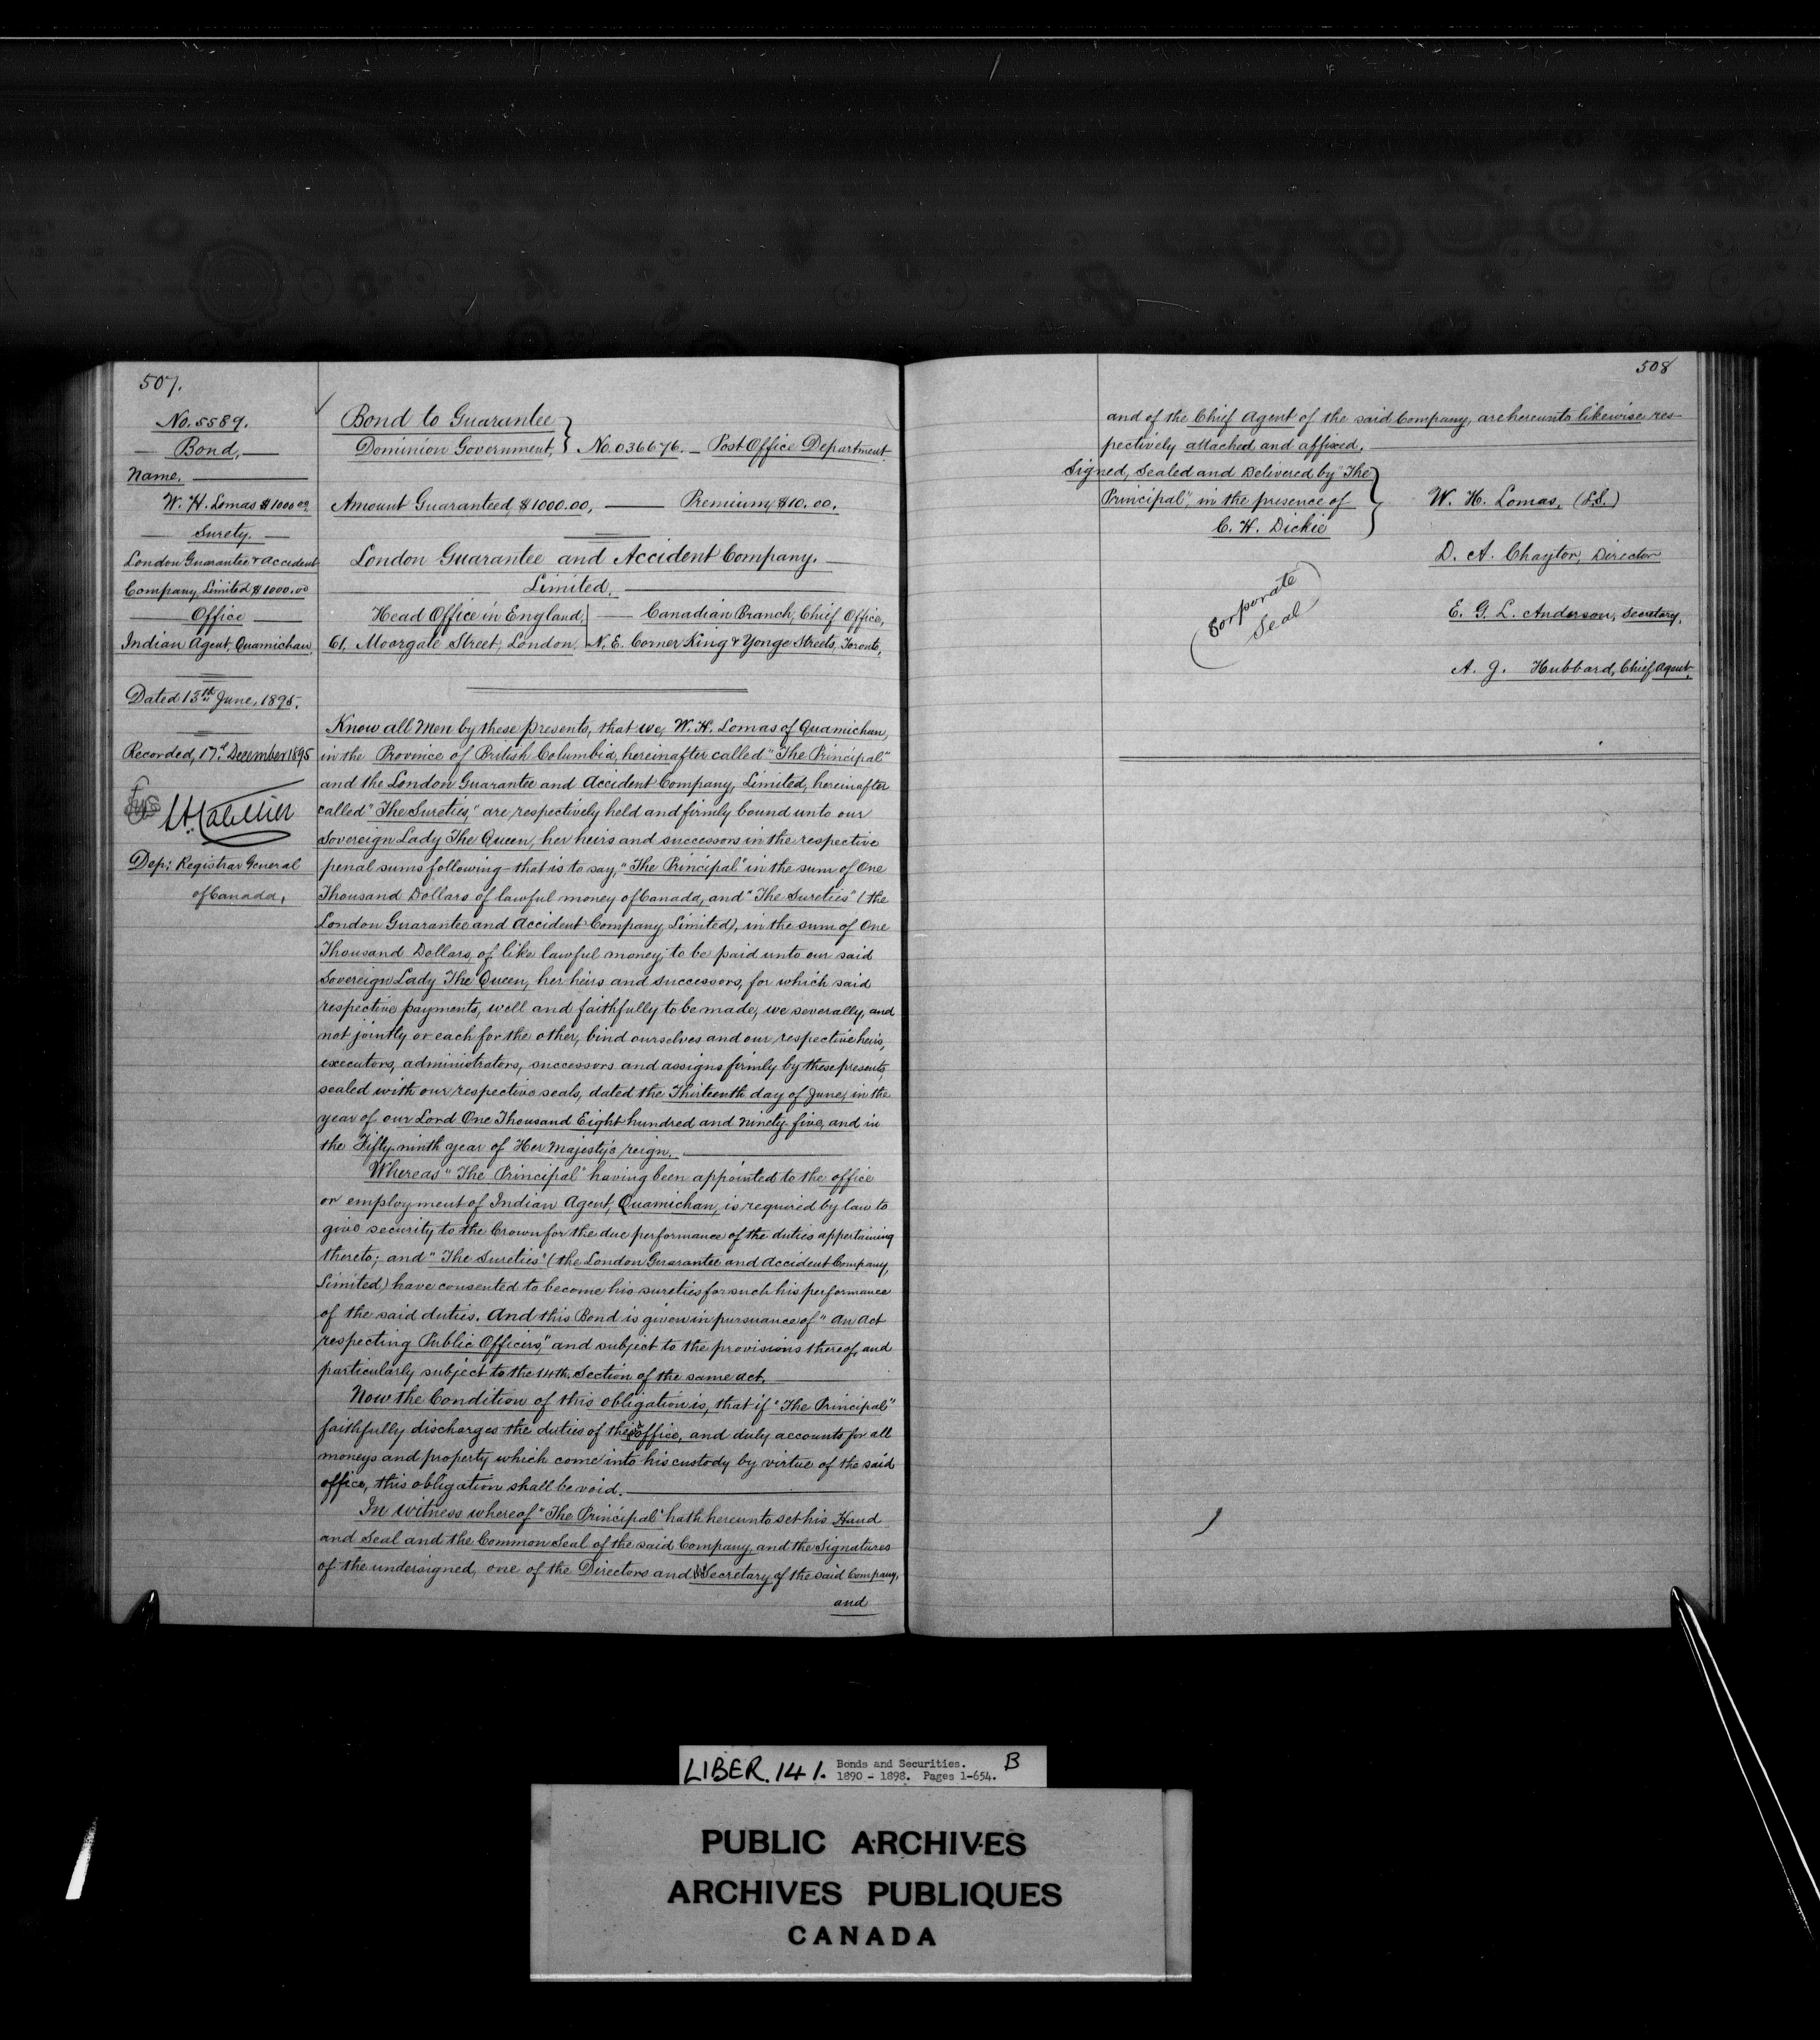 507.
No. 5589.
Bond,
Name,
W. H. Lomas $1000.00
Surety.
London Guarantee & Accident
Company, Limited $1000.00
Office
Indian Agent, Quamichan,
Dated 13th June, 1895.
Recorded, 17th December 1895
Dep: Registrar General
of Canada,
Bond to Guarantee
Dominion Government, } No. 036676. — Post Office Department
Amount Guaranteed, $1000.00, — Premium, $10.00.
London Guarantee and Accident Company.
Limited.
Head Office in England, — Canadian Branch, Chief Office,
61, Moorgate Street, London, N. E. Corner King & Yonge Streets, Toronto,
Know all Men by these Presents, that we, W. H. Lomas of Quamichan,
in the Province of British Columbia, hereinafter called "The Principal"
and the London Guarantee and Accident Company, Limited, hereinafter
called "The Sureties," are respectively held and firmly bound unto our
Sovereign Lady The Queen, her heirs and successors in the respective
penal sums following—that is to say, "The Principal" in the sum of One
Thousand Dollars of lawful money of Canada, and "The Sureties" (the
London Guarantee and Accident Company Limited), in the sum of One
Thousand Dollars, of like lawful money, to be paid unto our said
Sovereign Lady The Queen, her heirs and successors, for which said
respective payments, well and faithfully to be made, we severally, and
not jointly or each for the other, bind ourselves and our respective heirs,
executors, administrators, successors and assigns firmly by these presents,
sealed with our respective seals, dated the Thirteenth day of June, in the
year of our Lord One Thousand Eight hundred and ninety five, and in
the Fifty ninth year of Her Majesty's reign.
Whereas "The Principal" having been appointed to the office
or employment of Indian Agent, Quamichan, is required by law to
give security to the Crown for the due performance of the duties appertaining
thereto; and "The Sureties" (the London Guarantee and Accident Company,
Limited) have consented to become his sureties for such his performance
of the said duties. And this Bond is given in pursuance of "An Act
respecting Public Officers," and subject to the provisions thereof, and
particularly subject to the 14th. Section of the same Act.
Now the Condition of this obligation is, that if "The Principal"
faithfully discharges the duties of the office, and duly accounts for all
moneys and property which come into his custody by virtue of the said
office, this obligation shall be void.
In Witness whereof "The Principal" hath hereunto set his Hand
and Seal and the Common Seal of the said Company, and the Signatures
of the undersigned, one of the Directors and Secretary of the said Company,
and
508
and of the Chief Agent of the said Company, are hereunto likewise res-
pectively attached and affixed.
Signed, Sealed and Delivered by "The
Principal", in the presence of
C. H. Dickie
W. H. Lomas, (L.S.)
D. A. Chaytor, Director
Corporate
Seal
E. G. L. Anderson, Secretary,
A. J. Hubbard, Chief Agent.
LIBER. 141. Bonds and Securities. B
1890 - 1898. Pages 1-654.
PUBLIC ARCHIVES
ARCHIVES PUBLIQUES
CANADA